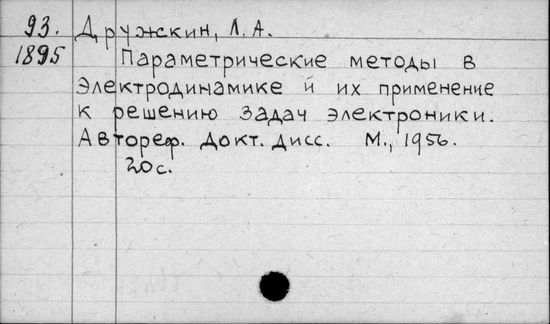 93. Дружкин, Л. А.
1895 Параметрические методы в
электродинамике и их применение
к решению задач электроники.
Автореф. Докт. дисс. М., 1956.
20с.